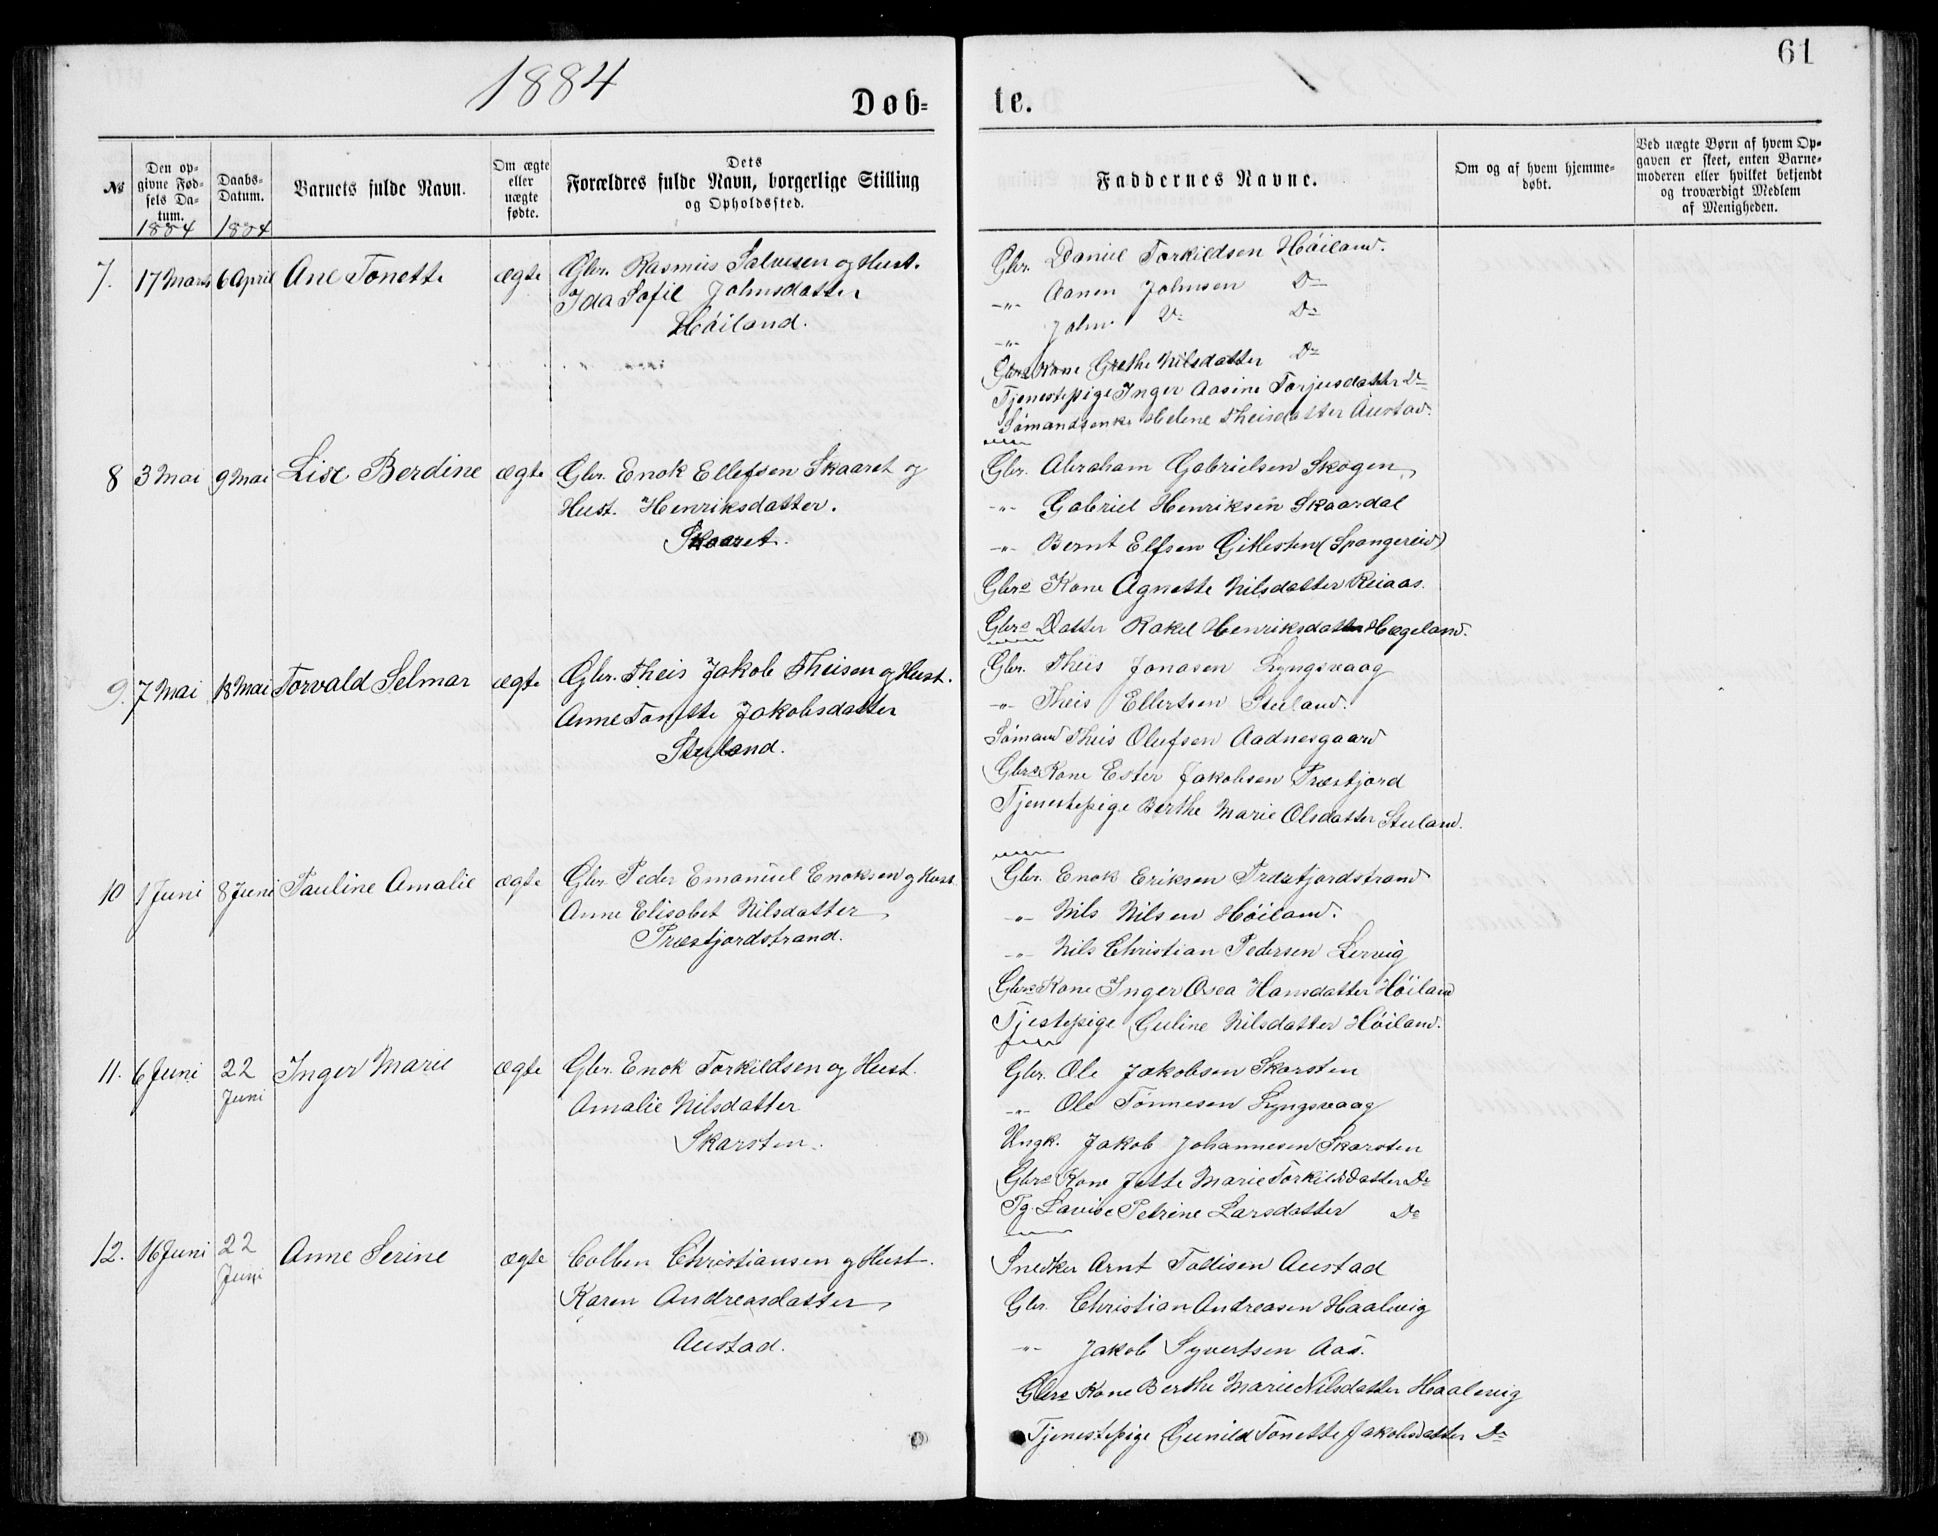 1884
61
Døb-
te.
№
Den op-
givne Fød-
sels Da-
tum.
1884
Daabs-
Datum.
1884
Barnets fulde Navn.
Om ægte
eller
uægte
fødte.
Dets
Forældres fulde Navn, borgerlige Stilling
og Opholdssted.
Faddernes Navne.
Om og af hvem hjemme-
døbt.
Ved uægte Børn af hvem Op-
gaven er skeet, enten Barne-
moderen eller hvilket betjendt
og troværdigt Medlem
af Menigheden.
7. 17 Marts 6 April Ane Tonette ægte
Gbr. Rasmus Salvesen og Hust.
Ida Sofie Johnsdatter
Høiland.
Gbr. Daniel Torkildsen Høiland.
-"- Aanen Johnsen Do
-"- John Do Do
Gbrs Kone Grethe Nilsdatter Do
Tjenestepige Inger Aasine Torjusdatter Do
Sømandsenke Helene Theisdatter Austad.
8 3 Mai 9 Mai Lise Berdine ægte
Gbr. Enok Ellefsen Skaaret og
Hust. Henriksdatter.
Skaaret.
Gbr. Abraham Gabrielsen Skogen
-"- Gabriel Henriksen Skaardal
-"- Bernt Elfsen Gitlesten (Spangereid)
Gbrs Kone Agnette Nilsdatter Reiaas.
Gbrs Datter Rakel Henriksdatter Hægeland.
9. 7 Mai 18 Mai Torvald Selmar ægte
Gbr. Theis Jakob Theisen og Hust.
Anne Tonette Jakobsdatter
Stuland.
Gbr. Theis Jonasen Lyngsvaag
-"- Theis Ellertsen Stuland.
Sømand Theis Olufsen Aadnesgaard
Gbrs Kone Ester Jakobsen Præstjord
Tjenestepige Berthe Marie Olsdatter Stuland.
10 1 Juni 8 Juni Pauline Amalie ægte
Gbr. Peder Emanuel Enoksen og Hust.
Anne Elisabet Nilsdatter
Præstjordstrand.
Gbr. Enok Eriksen Præstjordstrand
-"- Nils Nilsen Høiland.
-"- Nils Christian Pedersen Lervig
Gbrs Kone Inger Osea Hansdatter Høiland
Tjestepige Guline Nilsdatter Høiland.
11. 6 Juni 22
Juni
Inger Marie ægte
Gbr. Enok Torkildsen og Hust.
Amalie Nilsdatter
Skarsten.
Gbr. Ole Jakobsen Skarsten
-"- Ole Tønnesen Lyngsvaag
Ungk. Jakob Johannesen Skarsten
Gbrs Kone Jette Marie Torkildsdatter Do
Pg. Lavise Petrine Larsdatter Do
12. 16 Juni 22
Juni
Anne Serine ægte
Colben Christiansen og Hust.
Karen Andreasdatter
Austad.
Snedker Arnt Tollisen Austad
Gbr. Christian Andreasen Haalevig
-"- Jakob Syvertsen Aas.
Gbrs Kone Berthe Marie Nilsdatter Haalevig
Tjenestepige Gunild Tonette Jakobsdatter Do